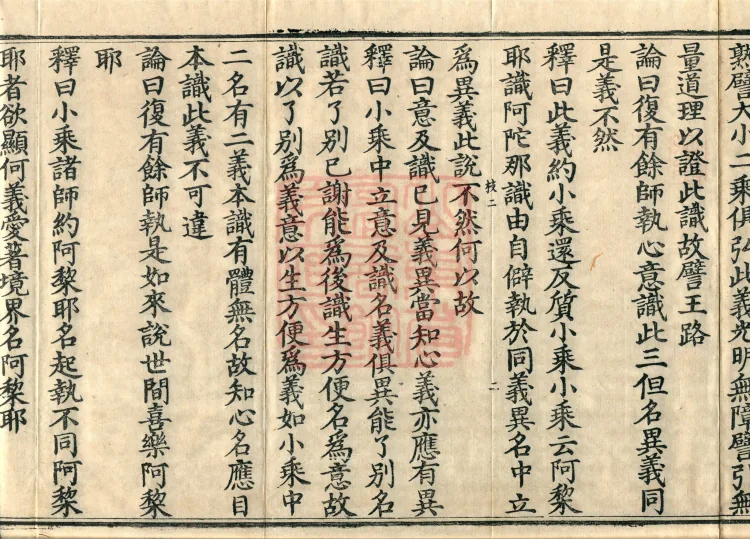 熟譬大小二乘俱弘此義光明無障譬弘無
量道理以證此識故譬王路
論曰復有餘師執心意識此三但名異義同
是義不然
釋曰此義約小乘還反質小乘小乘云阿黎
耶識阿陀那識由自僻執於同義異名中立
枝二
二
爲異義此說不然何以故
論曰意及識已見義異當知心義亦應有異
釋曰小乘中立意及識名義俱異能了別名
識若了別已謝能爲後識生方便名爲意故
識以了別爲義意以生方便爲義如小乘中
二名有二義本識有體無名故知心名應目
本識此義不可違
論曰復有餘師執是如來說世間喜樂阿黎
耶
釋曰小乘諸師約阿黎耶名起執不同阿黎
耶者欲顯何義愛著境界名阿黎耶